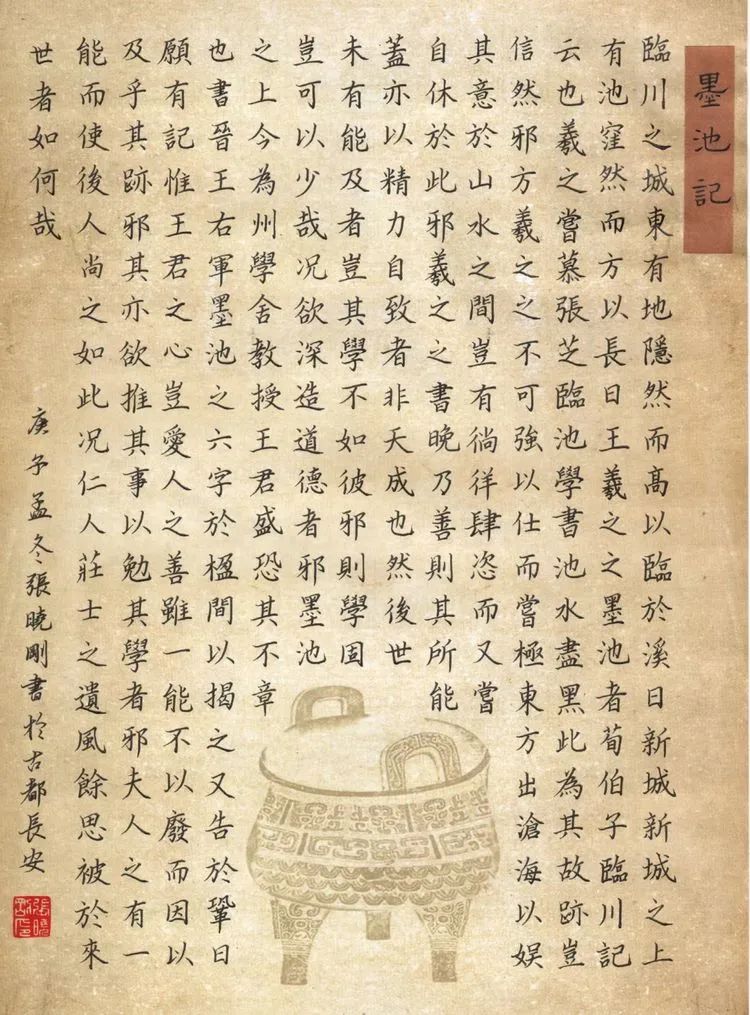 墨池記
臨川之城東有地隱然而髙以臨於溪曰新城新城之上
有池窪然而方以長曰王羲之之墨池者荀伯子臨川記
云也羲之嘗慕張芝臨池學書池水盡黑此為其故跡豈
信然邪方羲之之不可強以仕而嘗極東方出滄海以娛
其意於山水之間豈有徜徉肆恣而又嘗
自休於此邪羲之之書晚乃善則其所能
蓋亦以精力自致者非天成也然後世
未有能及者豈其學不如彼邪則學固
豈可以少哉况欲深造道德者邪墨池
之上今為州學舍教授王君盛恐其不章
也書晉王右軍墨池之六字於楹間以揭之又告於鞏曰
願有記惟王君之心豈愛人之善雖一能不以廢而因以
及乎其跡邪其亦欲推其事以勉其學者邪夫人之有一
能而使後人尚之如此况仁人莊士之遺風餘思被於來
世者如何哉
庚子孟冬張曉剛書於古都長安